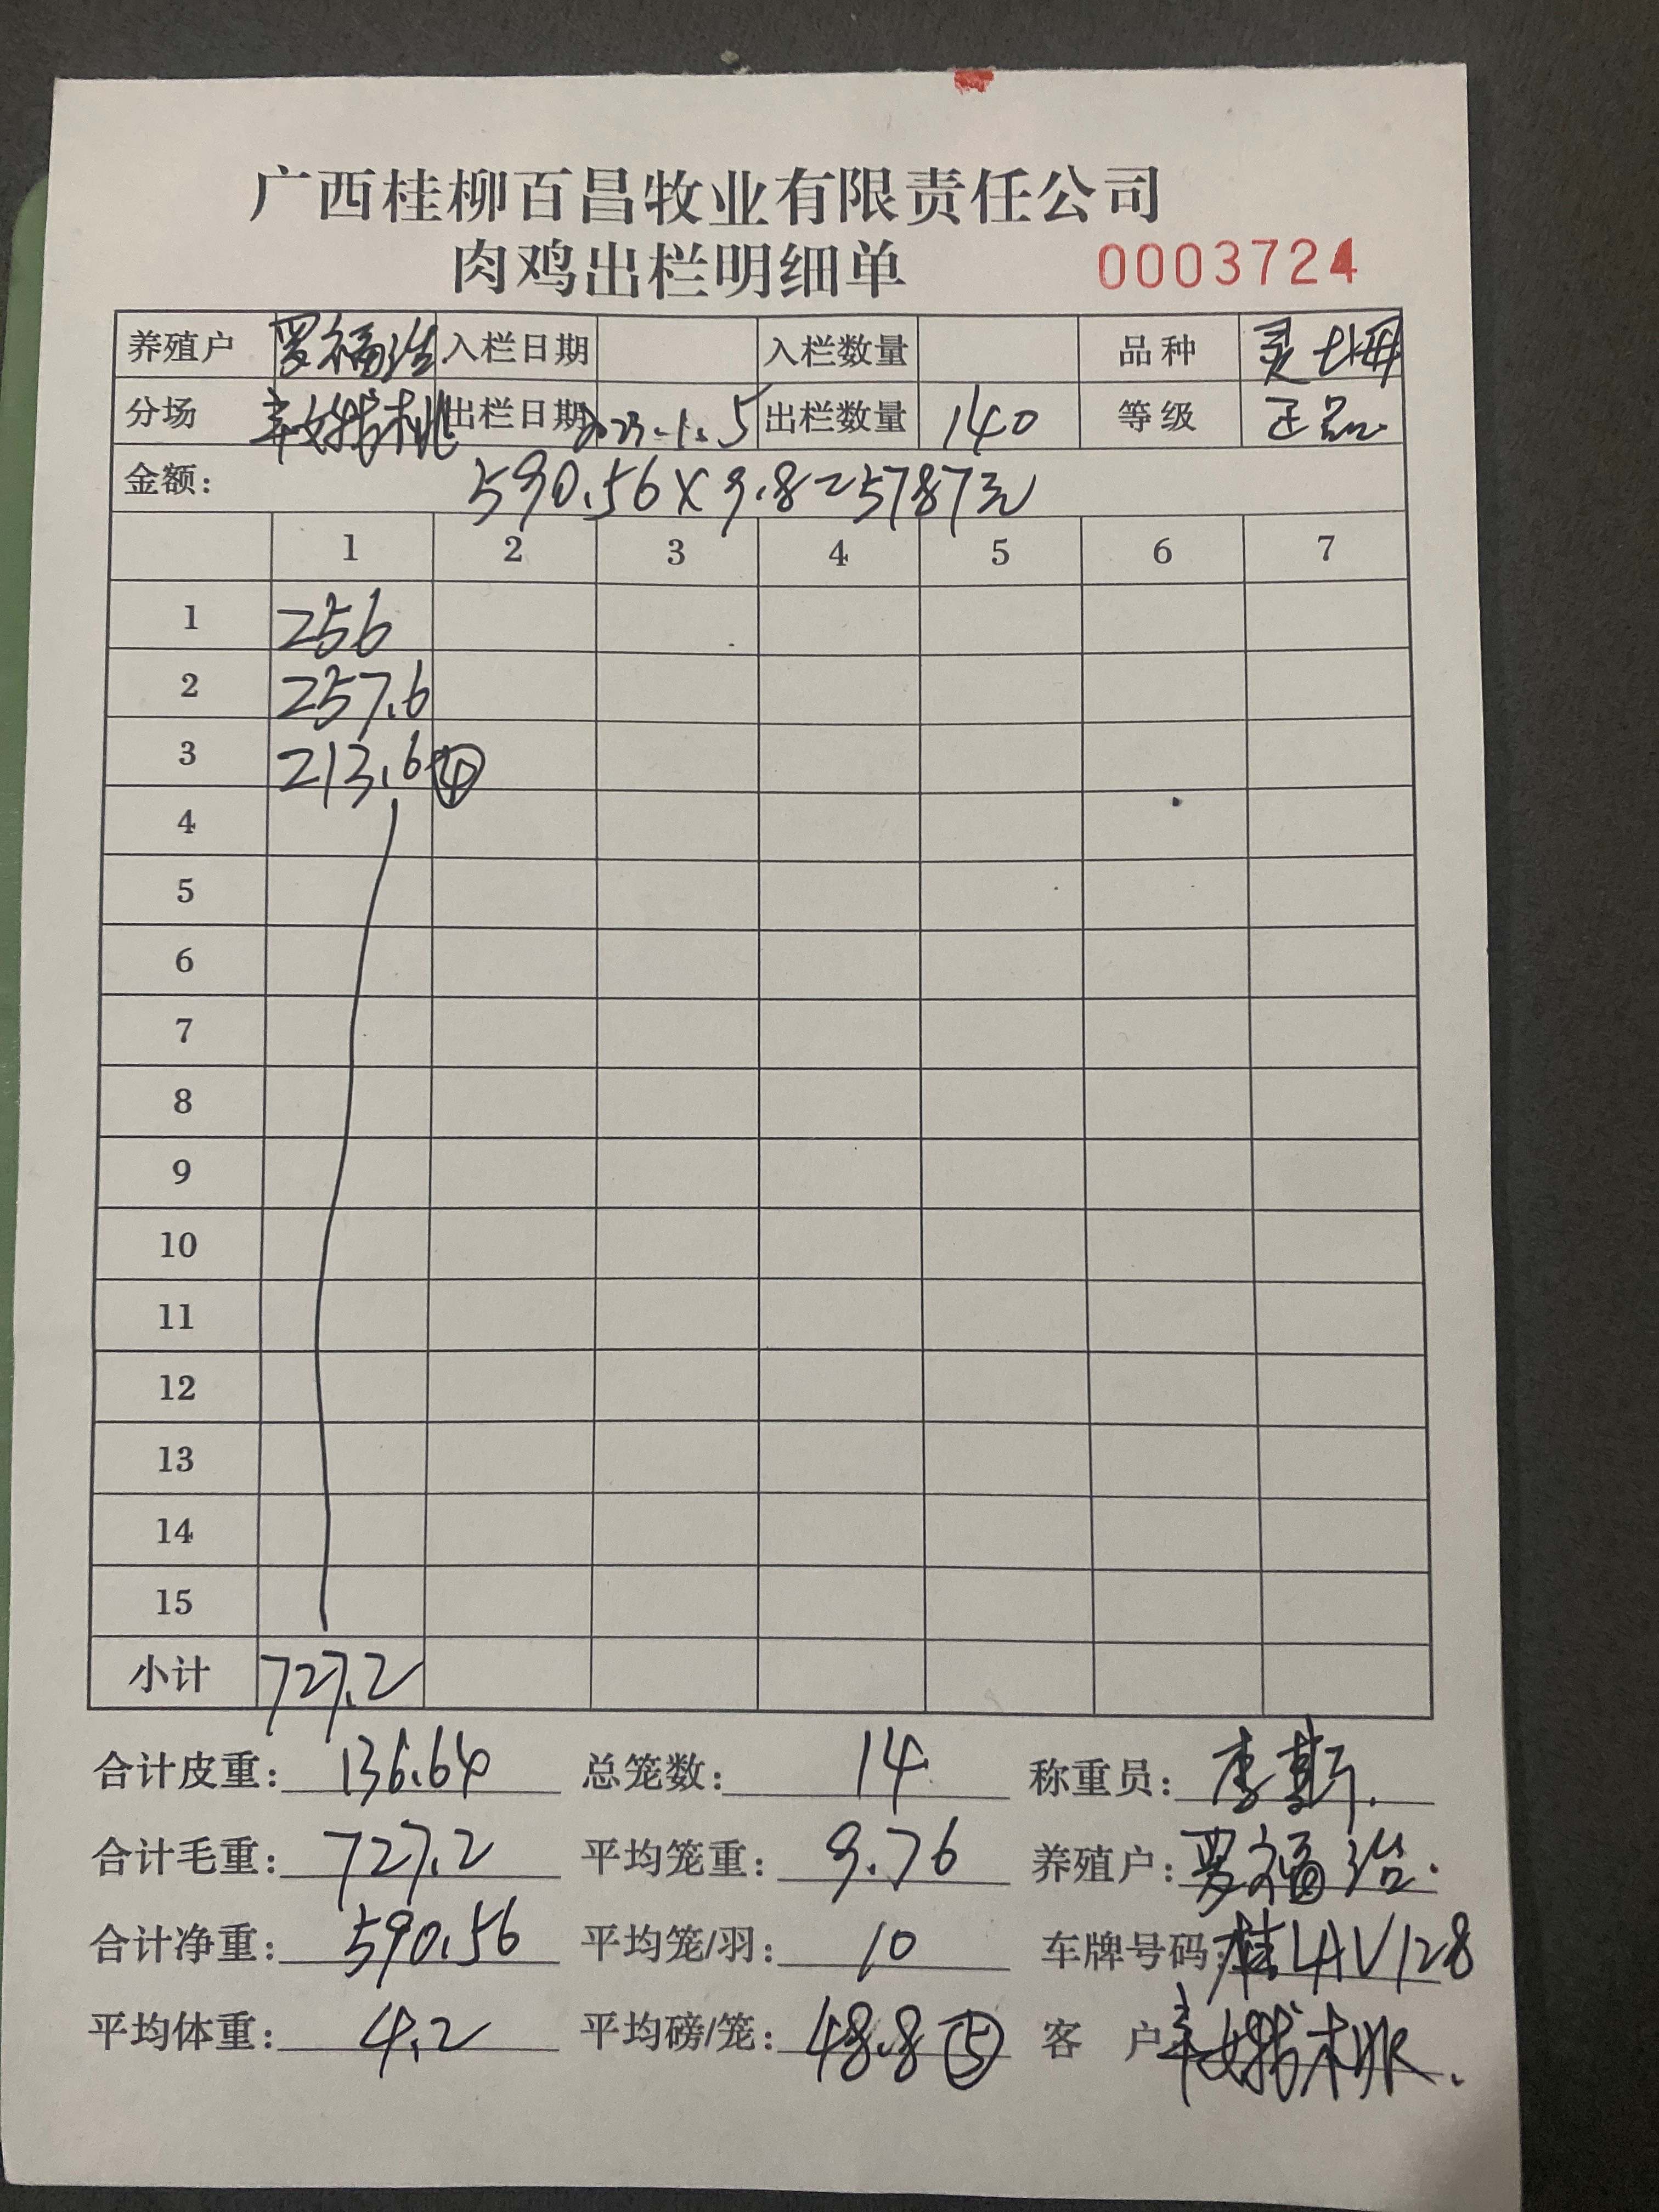 广西桂柳百昌牧业有限责任公司
肉鸡出栏明细单 0003724
养殖户 罗福治 入栏日期 入栏数量 品种 灵山母
分场 出栏日期 2023.1.5 出栏数量 140 等级 正品
金额: 590.56×9.8=5787元
1 2 3 4 5 6 7
1 256
2 257.6
3 213.6 ④
4
5
6
7
8
9
10
11
12
13
14
15
小计 727.2
合计皮重: 136.64 总笼数: 14 称重员: 李
合计毛重: 727.2 平均笼重: 9.76 养殖户: 罗福治.
合计净重: 590.56 平均笼/羽: 10 车牌号码: 桂LAV128
平均体重: 4.2 平均磅/笼: 48.8 ⑤ 客 户